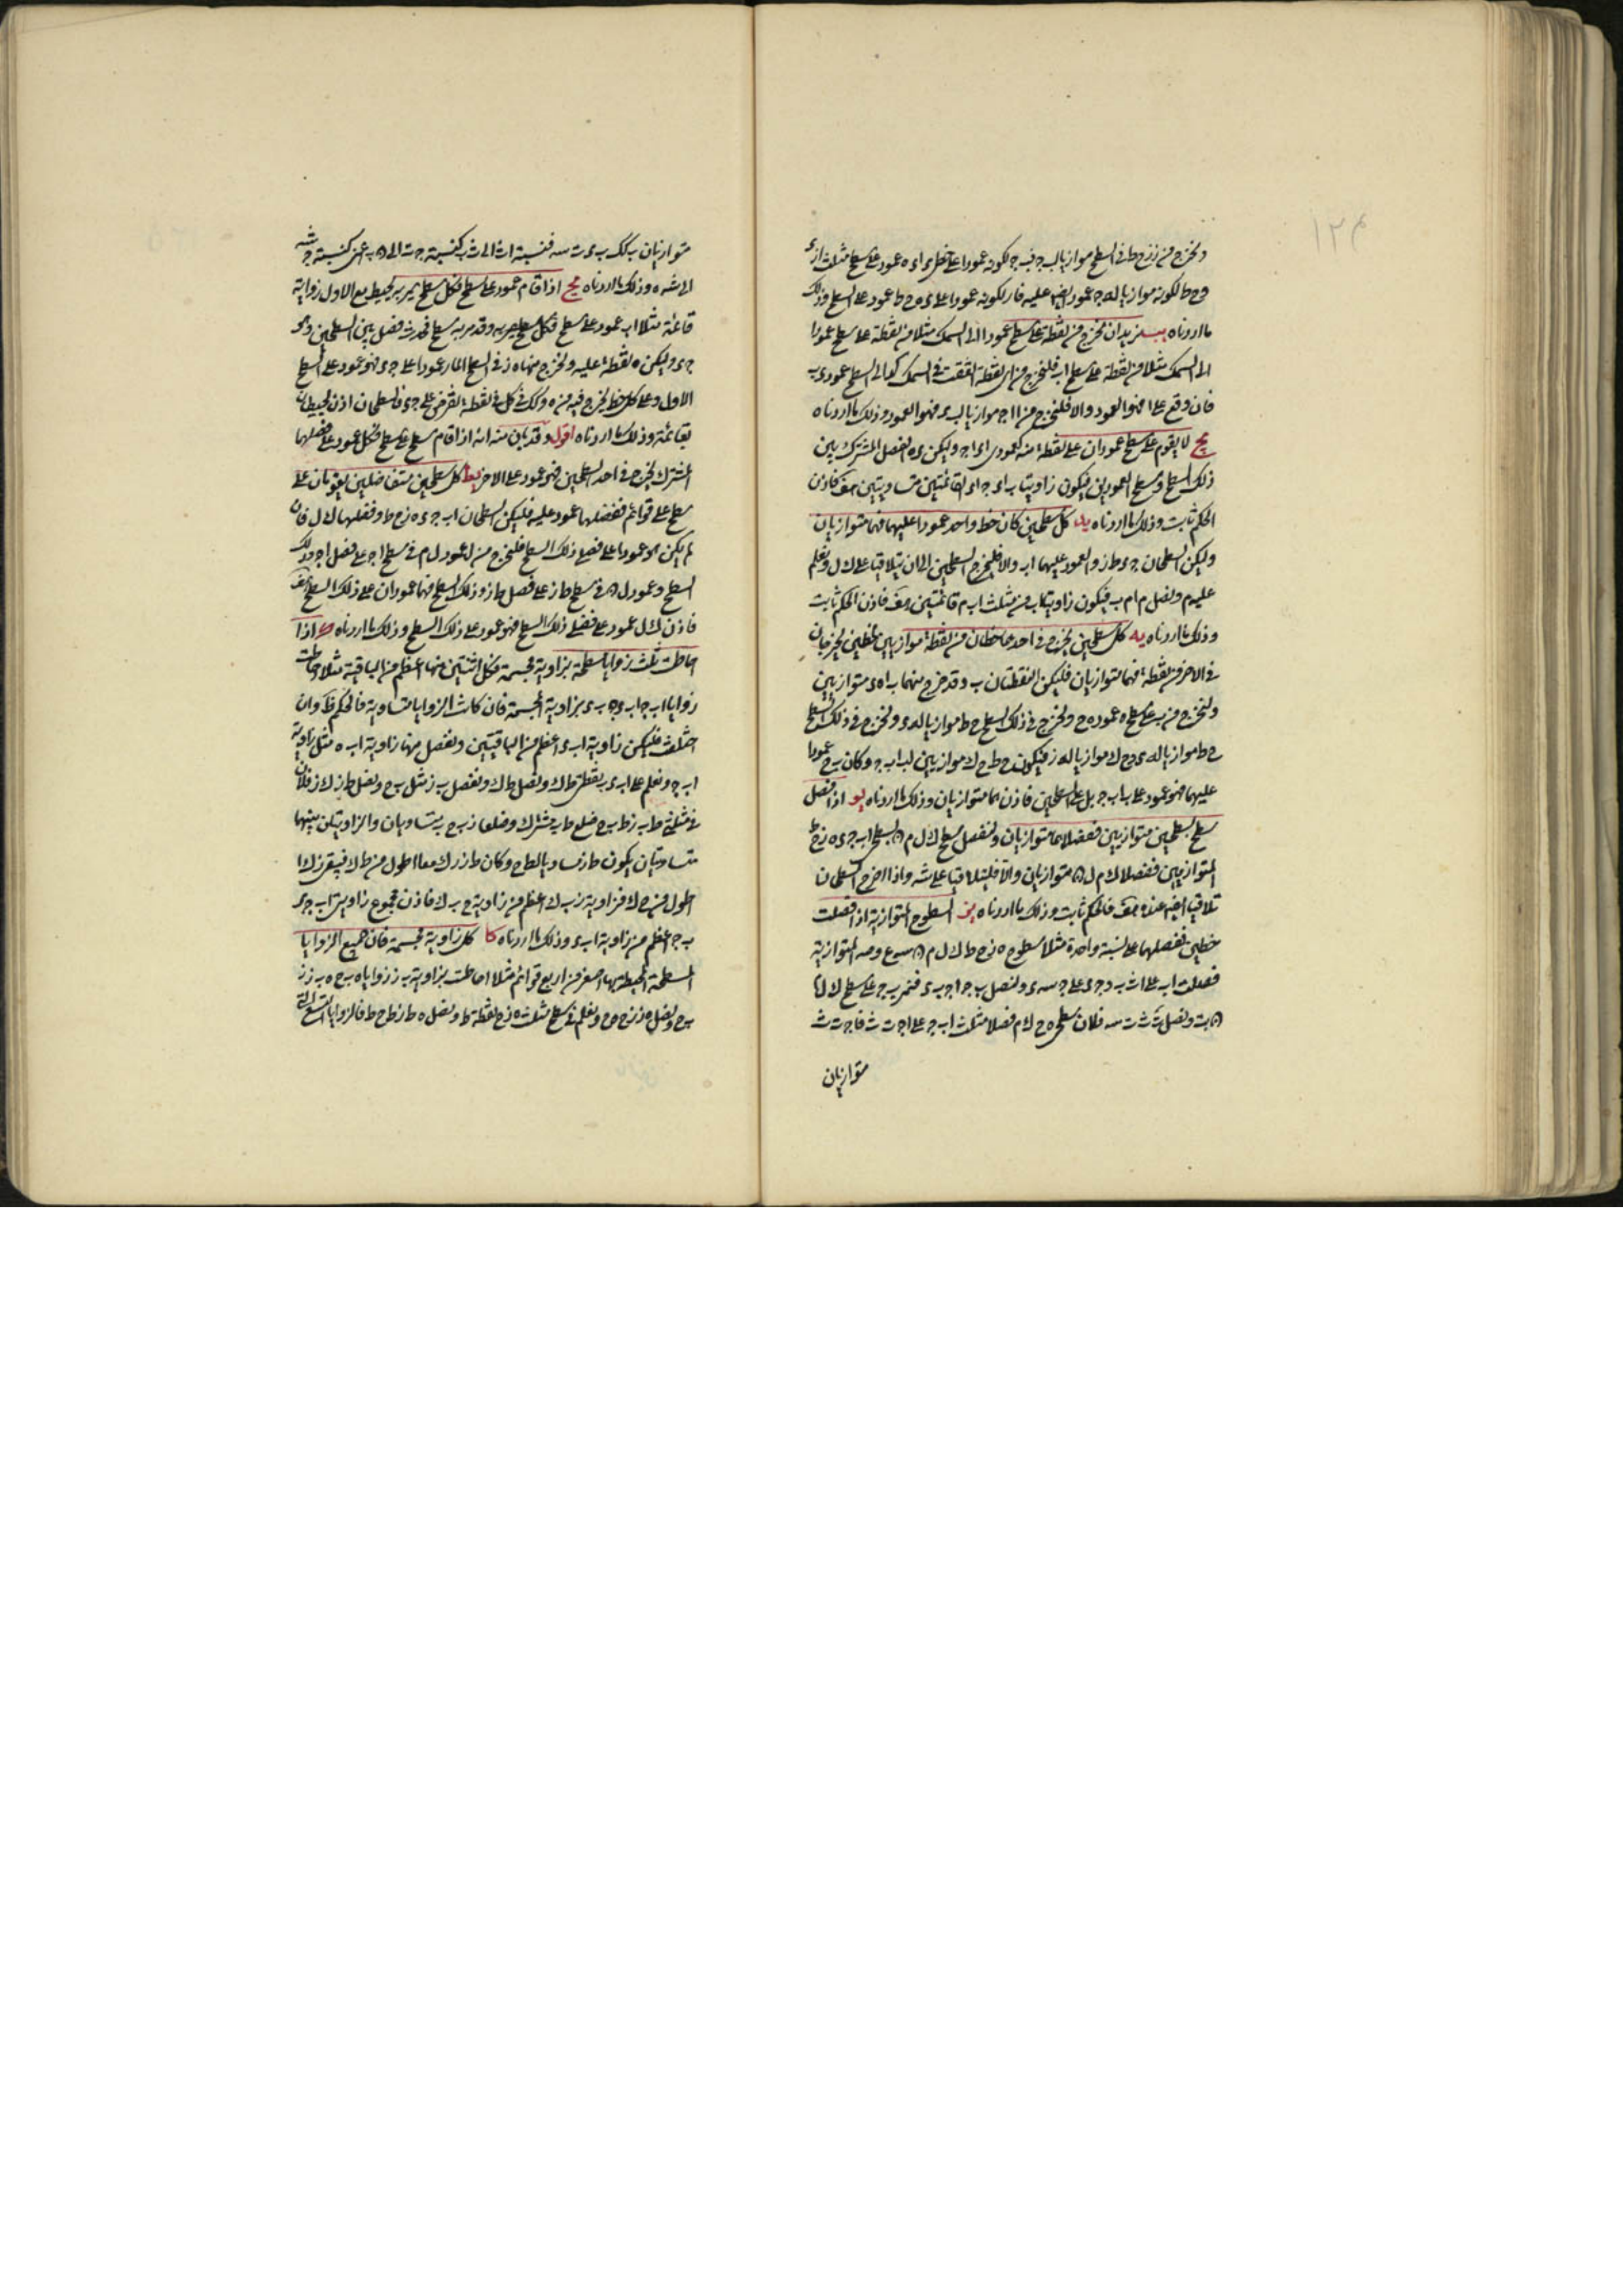 ونخرج من ز زح ط فى السطح موازيا لب ج فب ج لكونه عمودا على خطى ء ا ء ه عمود على سطح مثلث ا ز ء
وح ط لكونه موازيا له ج عمود ايضا عليه فا ز لكونه عمودا على ء ه و ح ط عمود على السطح وذلك
ما اردناه يب نريد ان نخرج من نقطة على سطح عمودا الى السمك مثلا من نقطة على سطح عمودا
الى السمك مثلا من نقطة على سطح اب فلنخرج من اى نقطة اتفقت فى السمك كء الى السطح عمود ء ب
فان وقع على ا فهو العمود والا فلنخرج من ا ا ج موازيا لب ء فهو العمود وذلك ما اردناه
يج لا يقوم على سطح عمودان على نقطة منه كعمودى ا ء ا ج وليكن ء ه الفصل المشترك بين
ذلك السطح وسطح العمودين فيكون زاويتا ب ا ء ج ا ء القائمتين متساويتين هف فاذن
الحكم ثابت وذلك ما اردناه يد كل سطحين كان خط واحد عمودا عليهما فهما متوازيان
وليكن السطحان ج ء ط ز والعمود عليهما اب والا فلنخرج السطحين الى ان يتلاقيا على ك ل ونعلم
عليه م ونصل م ا م ب فيكون زاويتا ب من مثلث اب م قائمتين هف فاذن الحكم ثابت
وذلك ما اردناه يه كل سطحين يخرج فى احدهما خطان من نقطة موازيين لخطين يخرجان
فى الاخر من نقطة فهما متوازيان فليكن النقطتان ب ه وقد خرج منهما ب ا ه ء متوازيين
ولنخرج من ب على سطح ه عمود ب ح ونخرج فى ذلك السطح ح ط موازيا له ء ونخرج فى ذلك السطح
ح ط موازيا له ء وح ك موازيا له ز فيكون ح ط ح ك موازيين لب ا ب ج وكان ب ح عمودا
عليهما فهو عمود على ب ا ب ج بل على السطحين فاذن هما متوازيان وذلك ما اردناه يو اذا فصل
سطح لسطحين متوازيين ففصلاهما متوازيان ولنفصل سطح ك ل م ن لسطح اب ج ء ه ز ح ط
المتوازيين ففصلا ك م ل ن متوازيان والا فليتلاقيا على شه واذا اخرج السطحان
تلاقيا ايضا عنده هف فالحكم ثابت وذلك ما اردناه يز السطوح المتوازية اذا فصلت
خطين ففصلهما على نسبة واحدة مثلا سطوح ه ز ح ط ك ل م ن سع وصه المتوازية
فصلت اب على ا ث ب وج ء على ج سه ء ولنصل ب ج ا ج ب ء فنمر ب ج على سطح ك ل
ن ب ت ونصل ث ت ت سه فلان سطحى ه ح ك م فصلا مثلث اب ج على ا ج ت ث فا ج ت ث
متوازيان
متوازيان بكك ب ء ت سه فنسبة ا ث الى ث ب كنسبة ج ت الى ن ب اعنى كنسبة ج شه
الى شه ء وذلك ما اردناه يح اذا قام عمود على سطح فكل سطح يمر به يحيط مع الاول زاوية
قائمة مثلا اب عمود على سطح فكل سطح يمر به وقد مر به سطح فحدث فصل بين السطحين وهو
ج ء وليكن ه نقطة عليه ونخرج منها ه ز فى السطح المار عمودا على ج ء فهو عمود على السطح
الاول وعلى كل خط يخرج فيه من ه وكك فى كل نقطة نفرض على ج ء فالسطحان اذن يحيطان
بقائمة وذلك ما اردناه اقول وقد بان منه انه اذا قام سطح على سطح فكل عمود على فصلهما
المشترك يخرج فى احد السطحين فهو عمود على الاخر يط كل سطحين متفاصلين يقومان على
سطح على قوائم ففصلهما عمود عليه فليكن السطحان اب ج ء ه ز ح ط وفصلهما ك ل فان
لم يكن هو عمودا على فصلى ذلك السطح فلنخرج من ل عمود ل م فى سطح ا ج على فصل ا ج وذلك
السطح وعمود ل ن فى سطح ط ز على فصل ط ز وذلك السطح فهما عمودان على ذلك السطح هف
فاذن ك ل عمود على فصلى ذلك السطح فهو عمود على ذلك السطح وذلك ما اردناه ك اذا
احاطت ثلث زوايا مسطحة بزاوية مجسمة فكل اثنتين منها اعظم من الباقية مثلا احاطت
زوايا اب ج اب ء ج ب ء بزاوية ب المجسمة فان كانت الزوايا متساوية فالحكم ظ وان
اختلفت فليكن زاوية اب ء اعظم من الباقيتين ونفصل منها زاوية اب ه مثل زاوية
اب ج ونعلم على اب ء ب نقطتى ط ك ونصل ط ك ونفصل ب ز مثل ب ح ونصل ط ز ك ز فلان
فى مثلثى ط ب ز ط ب ح ضلع ط ب مشترك وضلعا ز ب ح ب متساويان والزاويتان بينهما
متساويتان يكون ط ز مساويا لط ح وكان ط ز ز ك معا اطول من ط ك فيبقى ز ك ا
اطول من ح ك فزاوية ز ب ك اعظم من زاوية ح ب ك فاذن مجموع زاويتى اب ج ء
ب ج اعظم من زاوية اب ء وذلك ما اردناه كا كل زاوية مجسمة فان جميع الزوايا
المسطحة المحيطة بها اصغر من اربع قوائم مثلا احاطت بزاوية ب ز زوايا ه ب ح ه ب ز ز
ب ح ونصل ه ز ز ح ه ح ونعلم فى سطح مثلث ه ز ح نقطة ط ونصل ه ط ز ط ح ط فالزوايا التسع التى